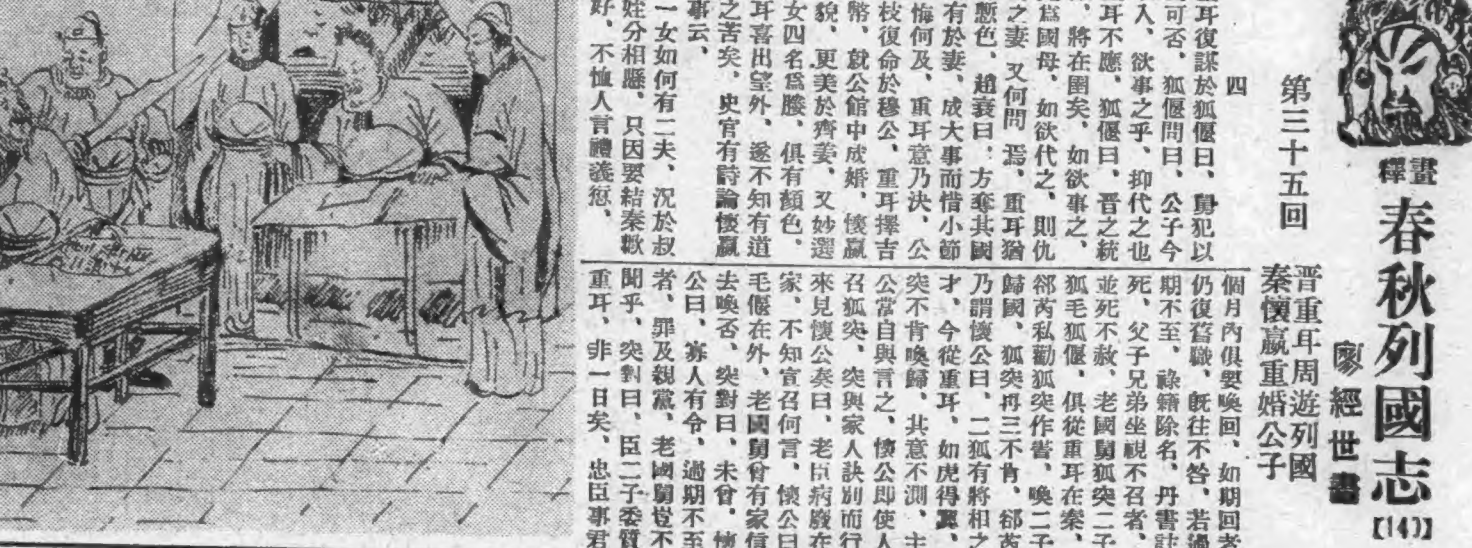 畫釋
春秋列國志
【140】
廖經世畫
第三十五回
晋重耳周遊列國
秦懷嬴重婚公子
四
耳復謀於狐偃曰、舅犯以
可否、狐偃問曰、公子今
人、欲事之乎、抑代之也
耳不應、狐偃曰、晋之統
、將在圉矣、如欲事之、
爲國母、如欲代之、則仇
之妻、又何問焉、重耳猶
慙色、趙衰曰、方奪其國
有於妻、成大事而惜小節
悔何及、重耳意乃決、公
枝復命於穆公、重耳擇吉
幣、就公館中成婚、懷嬴
貌、更美於齊姜、又妙選
女四名爲媵、俱有顏色、
耳喜出望外、遂不知有道
之苦矣、史官有詩論懷嬴
事云、
一女如何有二夫、況於叔
姪分相懸、只因要結秦歡
好、不恤人言禮義愆、
個月內俱要喚回、如期回者
仍復舊職、旣往不咎、若過
期不至、祿籍除名、丹書註
死、父子兄弟坐視不召者、
並死不赦、老國舅狐突二子
狐毛狐偃、俱從重耳在秦、
郤芮私勸狐突作書、喚二子
歸國、狐突再三不肯、郤芮
乃謂懷公曰、二狐有將相之
才、今從重耳、如虎得翼、
突不肯喚歸、其意不測、主
公當自與言之、懷公即使人
召狐突、突與家人訣別而行
來見懷公奏曰、老臣病廢在
家、不知宣召何言、懷公曰
毛偃在外、老國舅曾有家信
去喚否、突對曰、未曾、懷
公曰、寡人有令、過期不至
者、罪及親黨、老國舅豈不
聞乎、突對曰、臣二子委質
重耳、非一日矣、忠臣事君